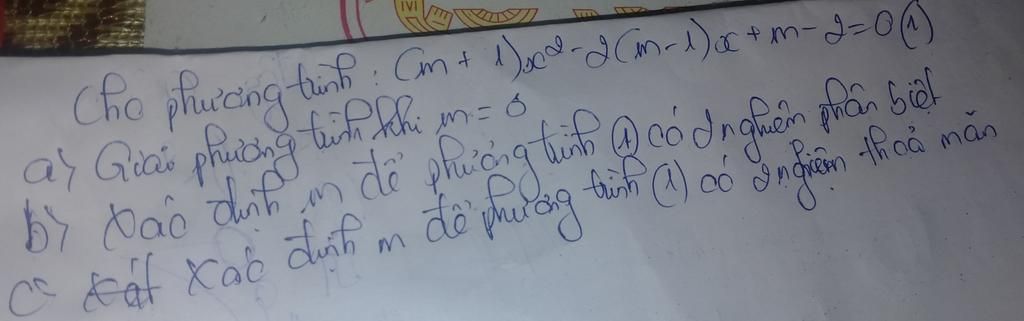 Cho phương trình : (m + 1)x² - 2(m-1)x + m - 2 = 0 (1)
a) Giải phương trình khi m = 0
b) Xác định m để phương trình (1) có 2 nghiệm phân biệt
c Xác định m để phương trình (1) có 2 nghiệm thoả mãn